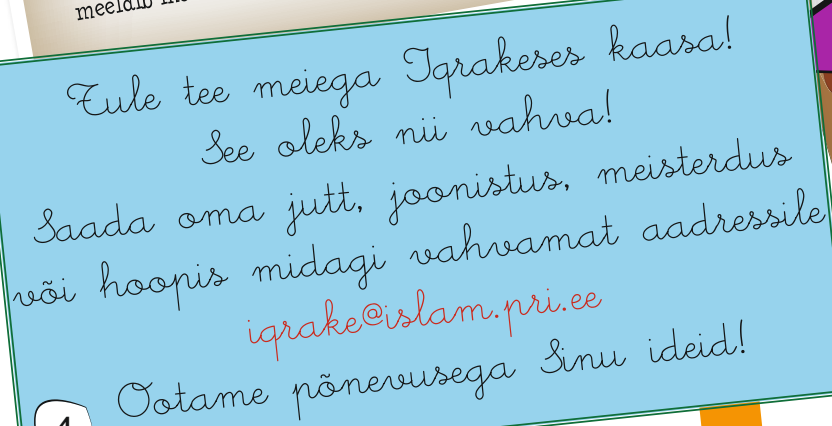 meeldib
Tule tee meiega Iqrakeses kaasa!
See oleks nii vahva!
Saada oma jutt, joonistus, meisterdus
või hoopis midagi vahvamat aadressile
iqrake@islam.pri.ee
Ootame põnevusega Sinu ideid!